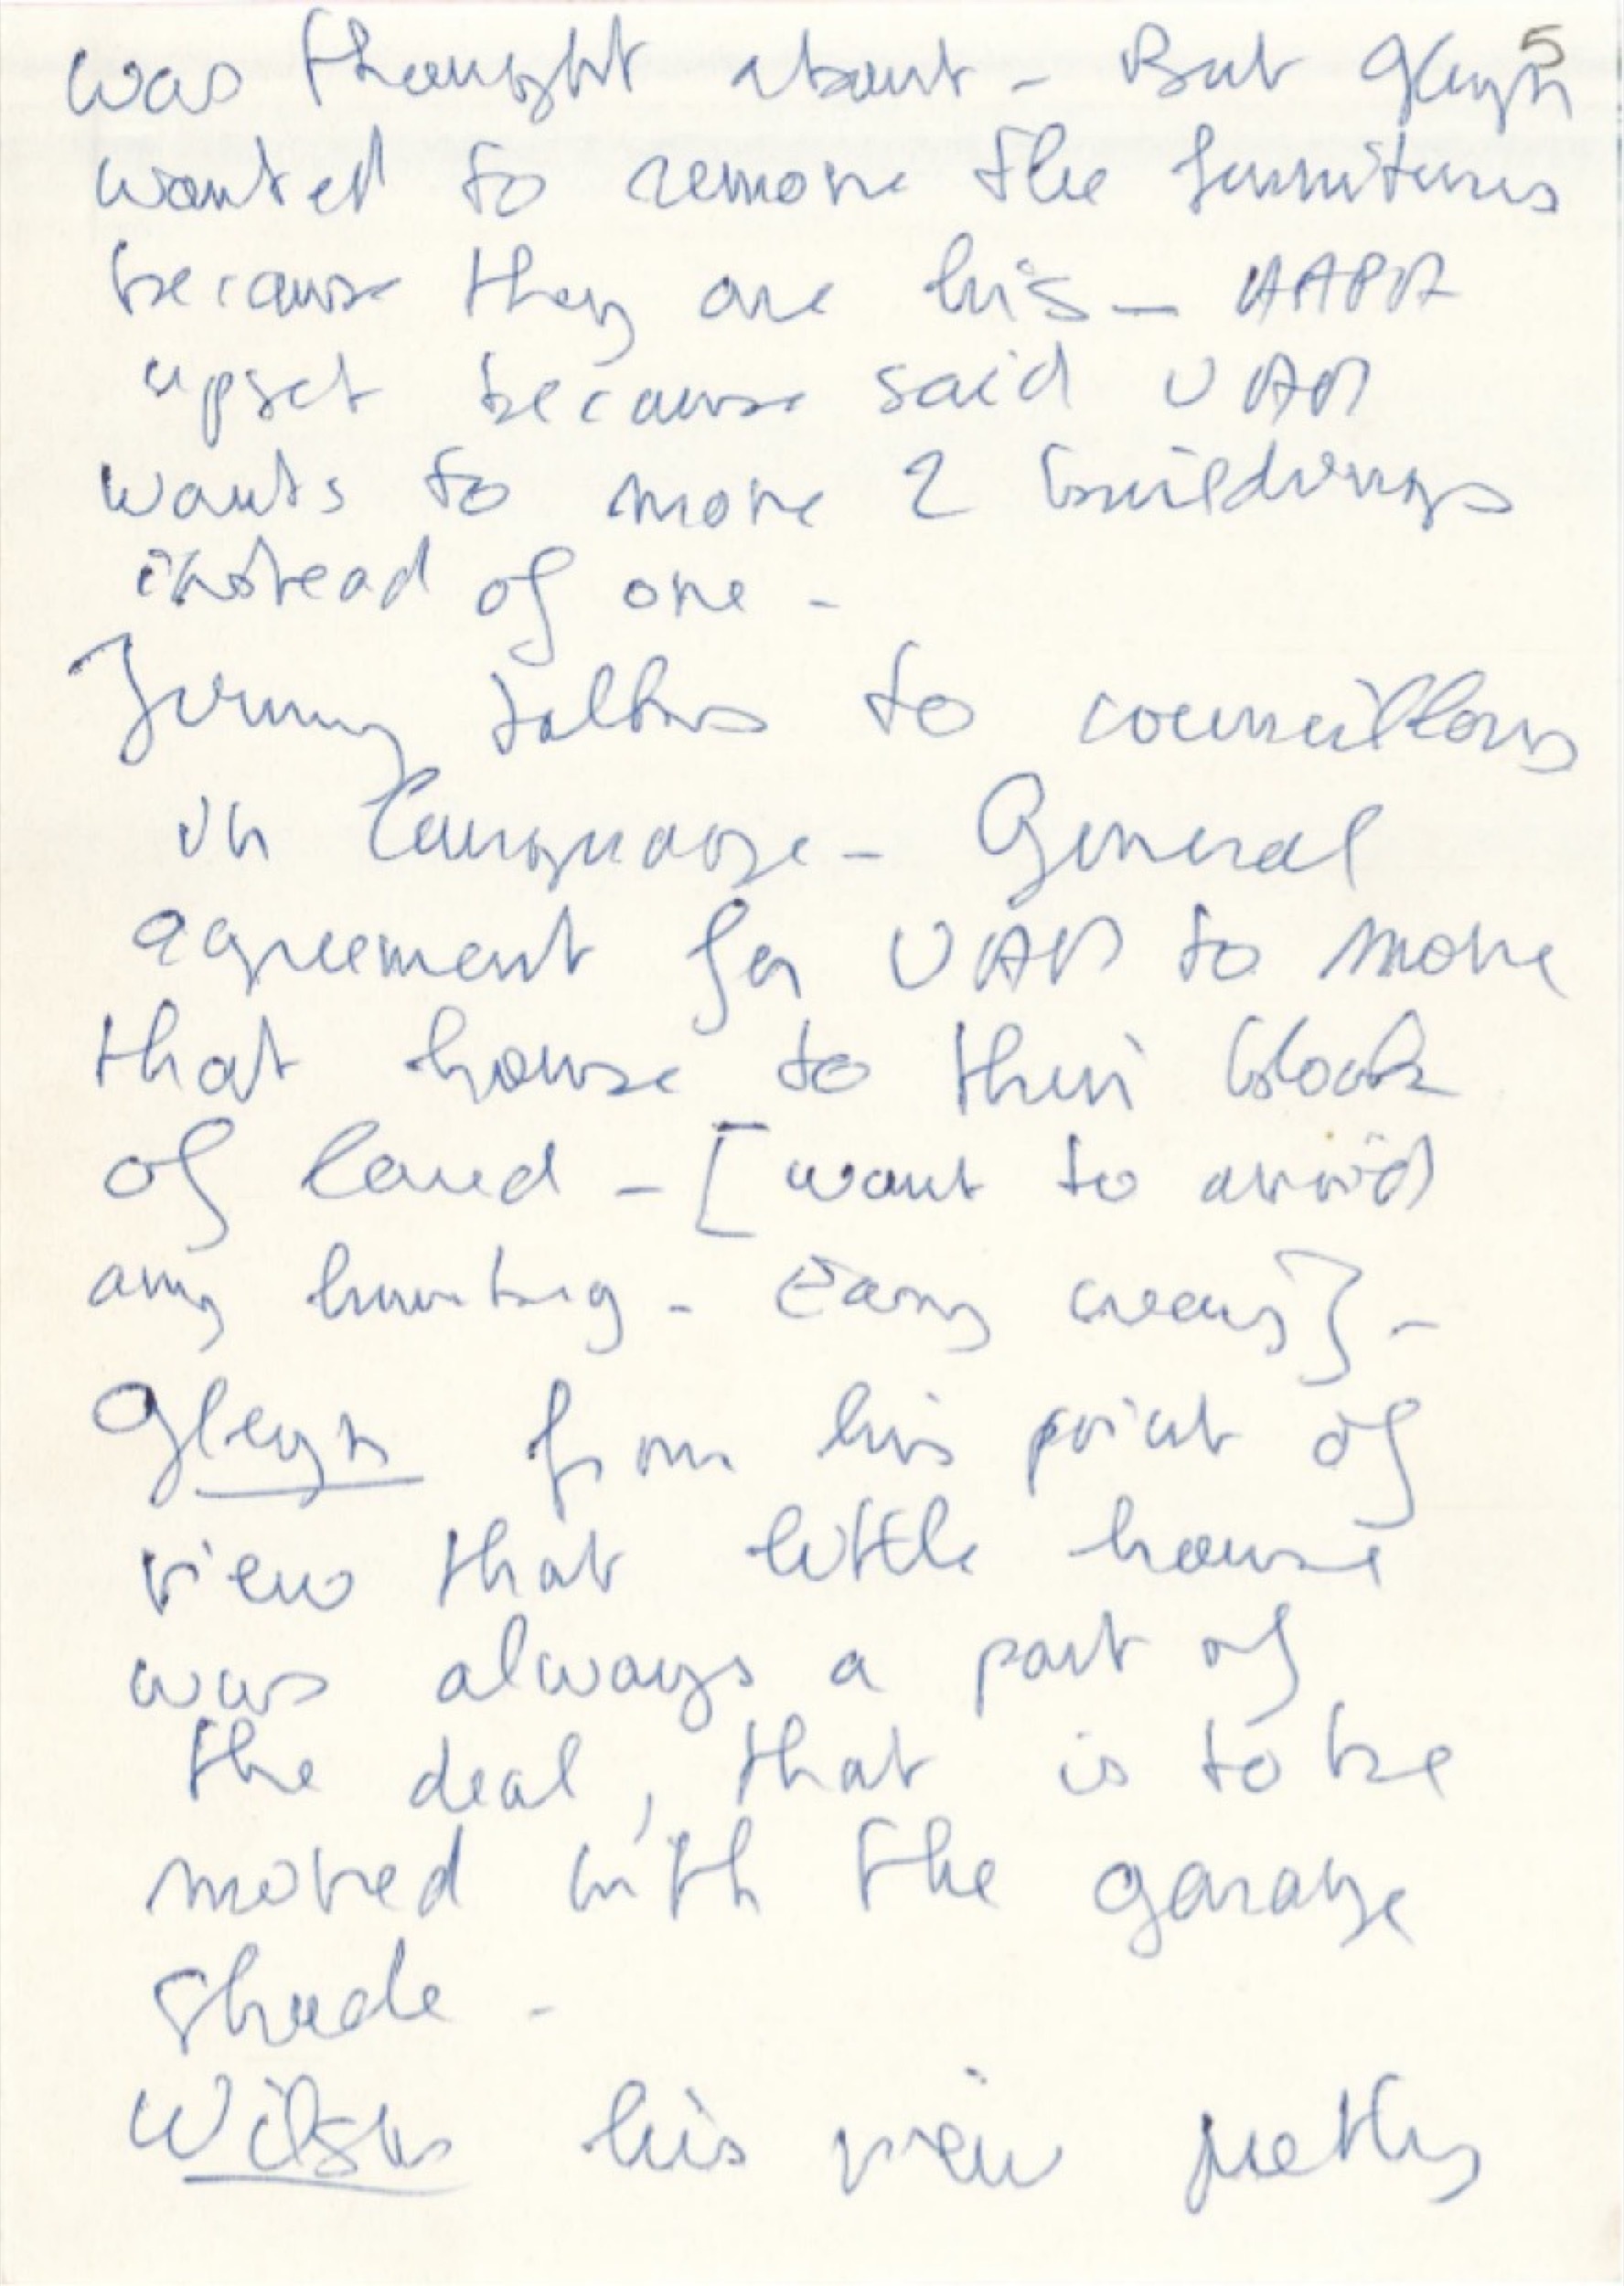 5
was thought about - But Gleyn
wanted to remove the furnitures
because they are his -
upset because said UAM
wants to move 2 buildings
instead of one -
Jimmy talks to councillors
in language - General
agreement for UAM to move
that house to their block
of land - [want to avoid
any humbug - Easy
Gleyn from his point of
view that little house
was always a part of
the deal, that is to be
moved with the garage
shade -
Wilson his view pretty